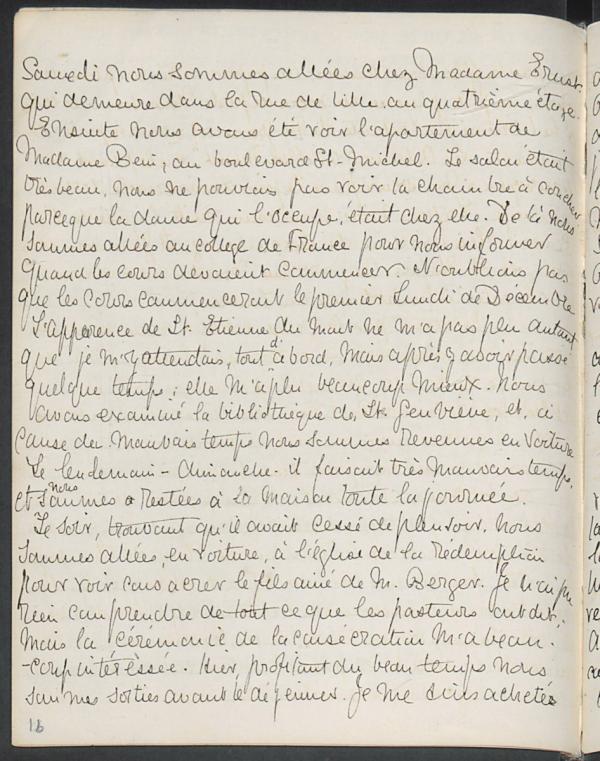 Samedi nous sommes allées chez Madame Ernst
qui demeure dans la rue de Lille au quatrième étage.
Ensuite nous avons été voir l'apartement de
Madame Beni, au boulevard St-Michel. Le salon était
très beau, nous ne pouvions pas voir la chambre à coucher
parceque la dame qui l'occupe, était chez elle. De là nous
sommes allées au college de France pour nous informer
quand les cours devaient commencer. N'oublions pas
que les cours commenceront le premier Lundi de Décembre
L'apparence de St. Etienne du Mont ne m'a pas plu autant
que je m'y attendais, tout d'abord, mais après y avoir passé
quelque temps, elle m'a plu beaucoup mieux. Nous
avons examiné la bibliothèque de St. Genviève, et, à
cause du mauvais temps nous sommes revenues en voiture
Le lendemain - dimanche - il faisait très mauvais temps,
et nous sommes restées à la maison toute la journée.
Le soir, trouvant qu'il avait cessé de pleuvoir, nous
sommes allées, en voiture, à l'église de la rédemption
pour voir consacrer le fils ainé de M. Berger. Je n'ai pu
rien comprendre de tout ce que les pasteurs ont dit,
mais la cérémonie de la consécration m'a beau-
-coup intéressée. Hier, profitant du beau temps nous
sommes sorties avant le déjeuner. Je me suis achetée
16